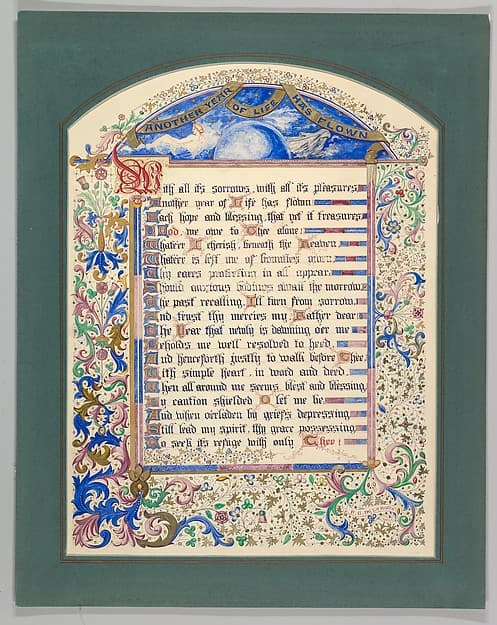 ANOTHER YEAR OF LIFE HAS FLOWN
With all its sorrows, with all its pleasures
Another year of Life has flown
Each hope and blessing, that yet it treasures
God, we owe to Thee alone:
Whate'er I cherish, beneath the Heaven
Whate'er is left me of bounties
My cares protection in all appear
Should anxious bidings await the morrow
The past recalling, I'll turn from sorrow
And trust thy mercies my Father dear
The Year that newly is dawning o'er me
Beholds me well resolved to heed
And henceforth justly to walk before Thee
With simple heart, in word and deed.
When all around me seems blest and blessing
By caution shielded O let me be
And when o'erladen by griefs depressing
Still lead my spirit, thy grace possessing
To seek its refuge with only Thee!